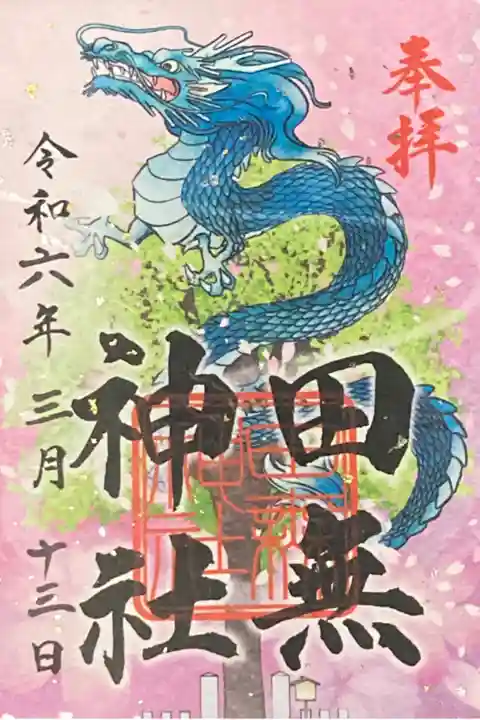 奉拝
田無
神社
令和六年三月十三日